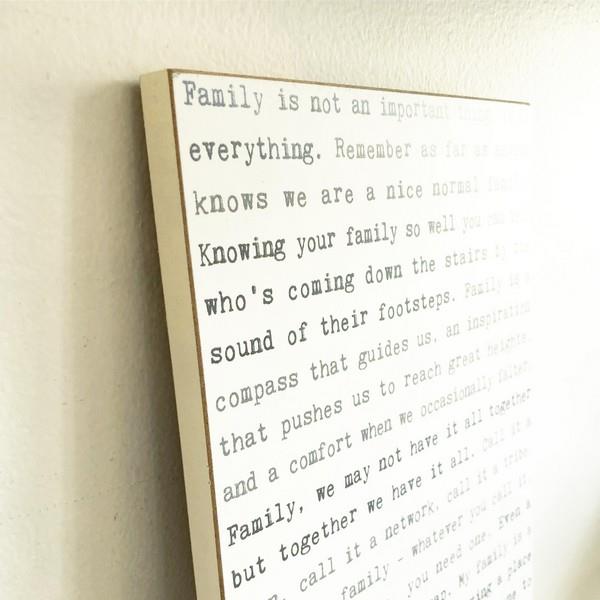 Family is not an important thing
everything. Remember as far as
knows we are a nice normal family
Knowing your family so well you can
who's coming down the stairs by the
sound of their footsteps. Family is a
compass that guides us, an inspiration
that pushes us to reach great heights,
and a comfort when we occasionally falter.
Family, we may not have it all together
but together we have it all. Call it a
call it a network, call it a tribe
family - whatever you call it,
you need one. Even a
My family is a
a place
to